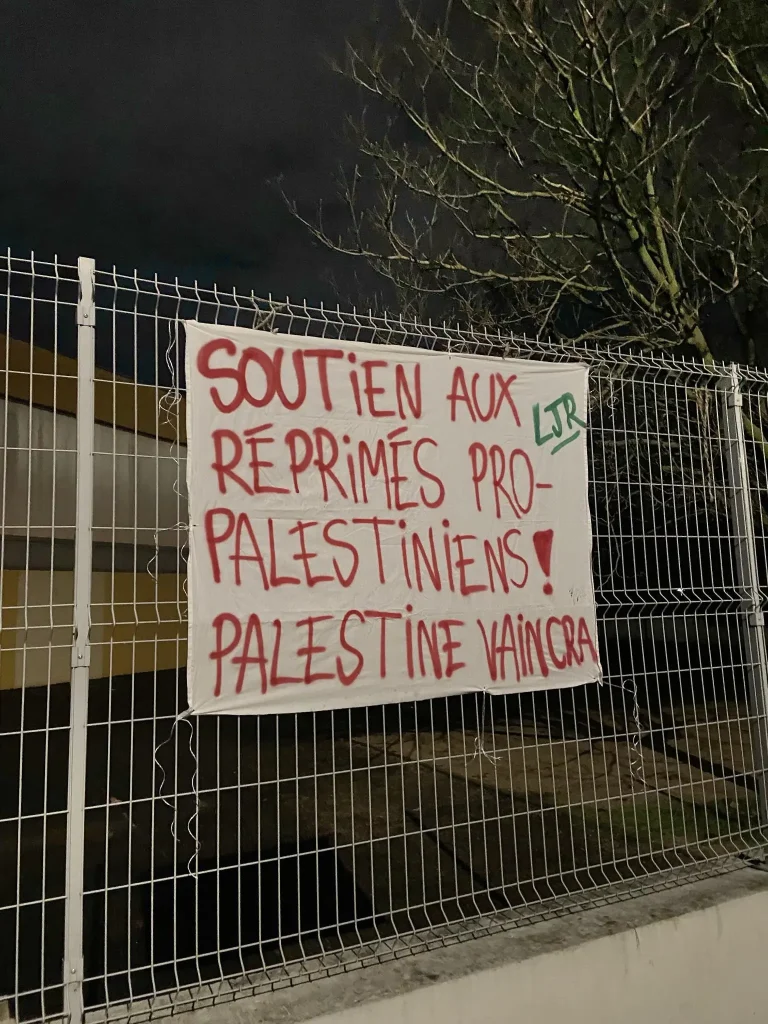 SOUTIEN AUX
LJR
RÉPRIMÉS PRO-
PALESTINIENS!
PALESTINE VAINCRA